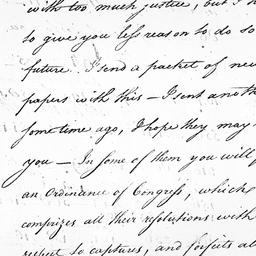 with too much justice, but I h
to give you less reason to do so
future. I send a packet of new
papers with this — I sent anoth
some time ago, I hope they may
you — In some of them you will f
an Ordinance of Congress, which
comprizes all their resolutions with
respect to captures, and forfeits al